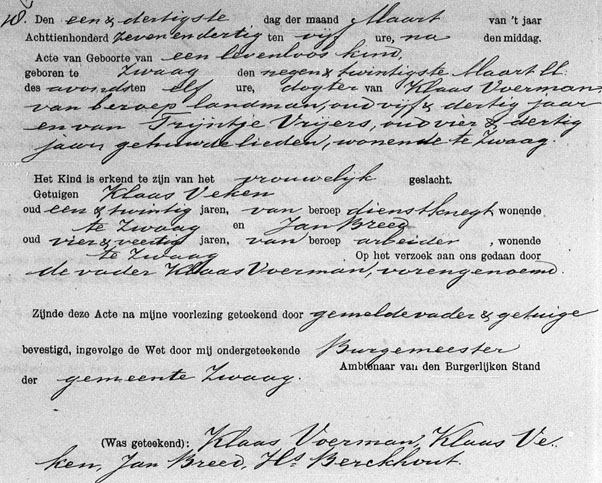 18. Den een & dertigste dag der maand Maart van 't jaar
Achttienhonderd zeven en dertig ten vijf ure, na den middag.
Acte van Geboorte van een levenloos kind,
geboren te Zwaag den negen & twintigste Maart ll.
des avondsten elf ure, dogter van Klaas Voerman,
van beroep landman, oud vijf & dertig jaar
en van Trijntje Vrijers, oud vier & dertig
jaar, gehuwde lieden, wonende te Zwaag.
Het Kind is erkend te zijn van het vrouwelijk geslacht.
Getuigen Klaas Veken
oud een & twintig jaren, van beroep dienstknegt, wonende
te Zwaag en Jan Breed
oud vier & veertig jaren, van beroep arbeider, wonende
te Zwaag Op het verzoek aan ons gedaan door
de vader Klaas Voerman, vorengenoemd.
Zijnde deze Acte na mijne voorlezing geteekend door gemelde vader & getuige
bevestigd, ingevolge de Wet door mij ondergeteekende Burgemeester
Ambtenaar van den Burgerlijken Stand
der gemeente Zwaag.
(Was geteekend): Klaas Voerman, Klaas Ve-
ken, Jan Breed, Hs Berckhout.